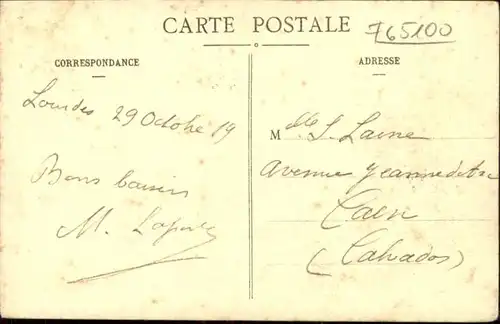 CARTE POSTALE
765100
CORRESPONDANCE
Lourdes 29 Octobre 19
Bons baisers
M.
ADRESSE
Mlle S. Laine
Avenue Jeanne d'Arc
Caen
(Calvados)